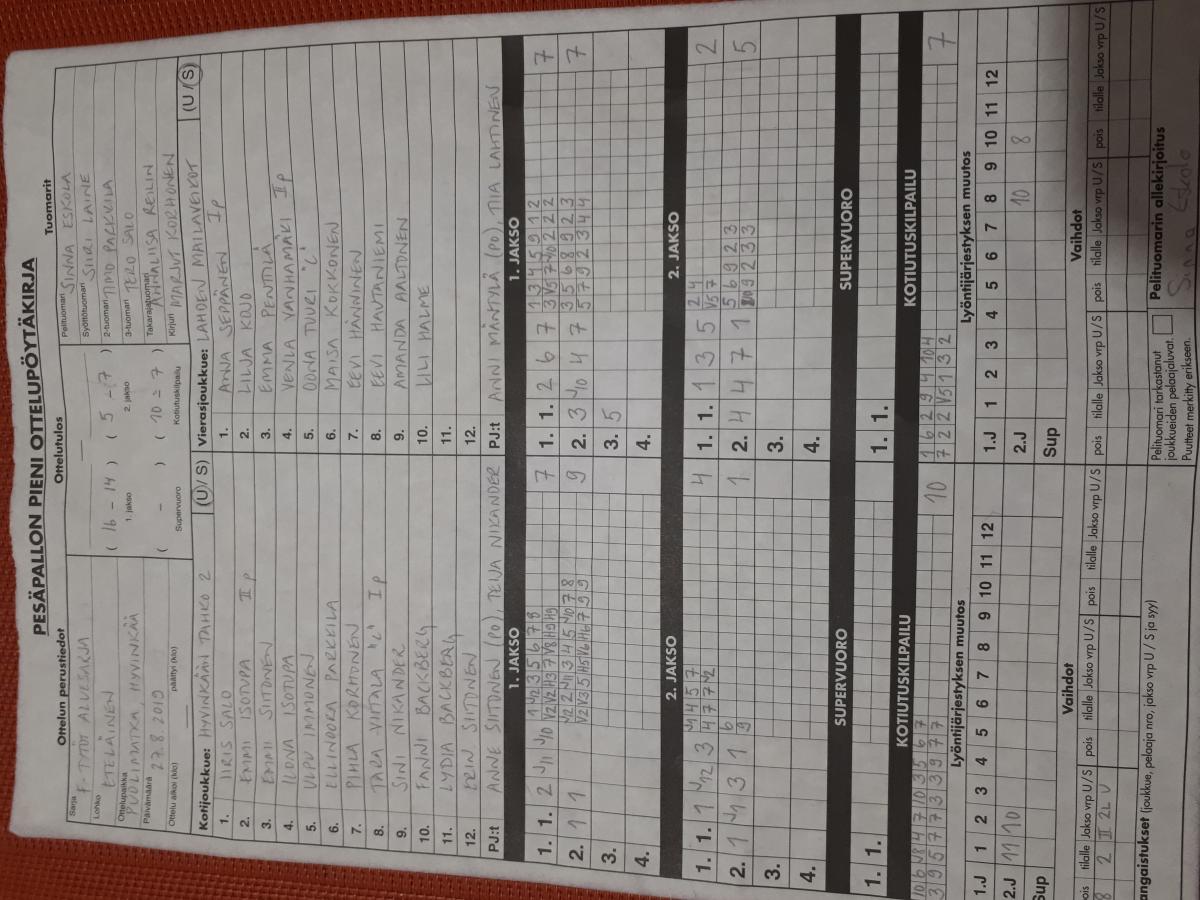 PESÄPALLON PIENI OTTELUPÖYTÄKIRJA
Ottelun perustiedot
Ottelutulos
Tuomarit
Sarja F-TYTÖT ALUESARJA
Lohko ETELÄINEN
Ottelupaikka PUOLIMATKA, HYVINKÄÄ
Päivämäärä 27.8.2019
Ottelu alkoi (klo) päättyi (klo)
( 16 - 14 ) ( 5 - 7 )
1. jakso 2. jakso
( - ) ( 10 - 7 )
Supervuoro Kotiutuskilpailu
Pelituomari SINNA ESKOLA
Syöttötuomari SIIRI LAINE
2-tuomari TIMO PARKKILA
3-tuomari TERO SALO
Takarajatuomari ANNALIISA REILIN
Kirjuri MARJUT KORHONEN
Kotijoukkue: HYVINKÄÄN TAHKO 2 (U/ S)
1. IIRIS SALO
2. EMMI ISOTUPA II p
3. EMMI SIITONEN
4. ILONA ISOTUPA
5. ULPU IMMONEN
6. ELLINOORA PARKKILA
7. PIHLA KORHONEN
8. TARA VIRTALA "C" I p
9. SINI NIKANDER
10. FANNI BACKBERG
11. LYDIA BACKBERG
12. ERIN SIITONEN
PJ:t ANNE SIITONEN (PO), TEIJA NIKANDER
Vierasjoukkue: LAHDEN MAILAVEIKOT (U / S)
1. AINA SEPPÄNEN I p
2. LILJA KOJO
3. EMMA PENTTILÄ
4. VENLA VANHAMÄKI II p
5. OONA TUURI "C"
6. MAISA KOKKONEN
7. EEVI HÄNNINEN
8. EEVI HAUTANIEMI
9. AMANDA AALTONEN
10. LILI HALME
11.
12.
PJ:t ANNI MÄNTYLÄ (PO), TIIA LAHTINEN
1. JAKSO
1. JAKSO
1. 1. 2 J11 J10 7
2. 1 1 9
3.
4.
1. 1. 2 6 7 1 3 4 5 9 1 2 7
2. 3 J10 4 7 3 5 6 8 9 2 3 7
5 7 9 2 3 4 4
3. 5
4.
2. JAKSO
2. JAKSO
1. 1. 1 J12 3 J1 4 5 7 4
4 7 7 J2
2. 1 J1 3 1 6 1
9
3.
4.
1. 1. 1 3 5 2 4 2
V5 7
2. 4 4 7 1 5 6 9 2 3 5
3.
4.
SUPERVUORO
SUPERVUORO
1. 1.
1. 1.
KOTIUTUSKILPAILU
KOTIUTUSKILPAILU
10 6 J8 4 7 10 3 5 6 7 10
3 9 5 7 7 3 3 9 7 7
1 6 2 9 4 10 4 7
7 2 2 V5 1 3 2
Lyöntijärjestyksen muutos
Lyöntijärjestyksen muutos
1.J 1 2 3 4 5 6 7 8 9 10 11 12
2.J 11 10
Sup
1.J 1 2 3 4 5 6 7 8 9 10 11 12
2.J 10 8
Sup
Vaihdot
Vaihdot
pois tilalle Jakso vrp U/S pois tilalle Jakso vrp U/S pois tilalle Jakso vrp U/S
8 2 II 2L U
pois tilalle Jakso vrp U/S pois tilalle Jakso vrp U/S pois tilalle Jakso vrp U/S
angaistukset (joukkue, pelaaja nro, jakso vrp U / S ja syy)
Pelituomari tarkastanut
joukkueiden pelaajaluvat.
Puutteet merkitty erikseen.
Pelituomarin allekirjoitus
Sinna Eskola